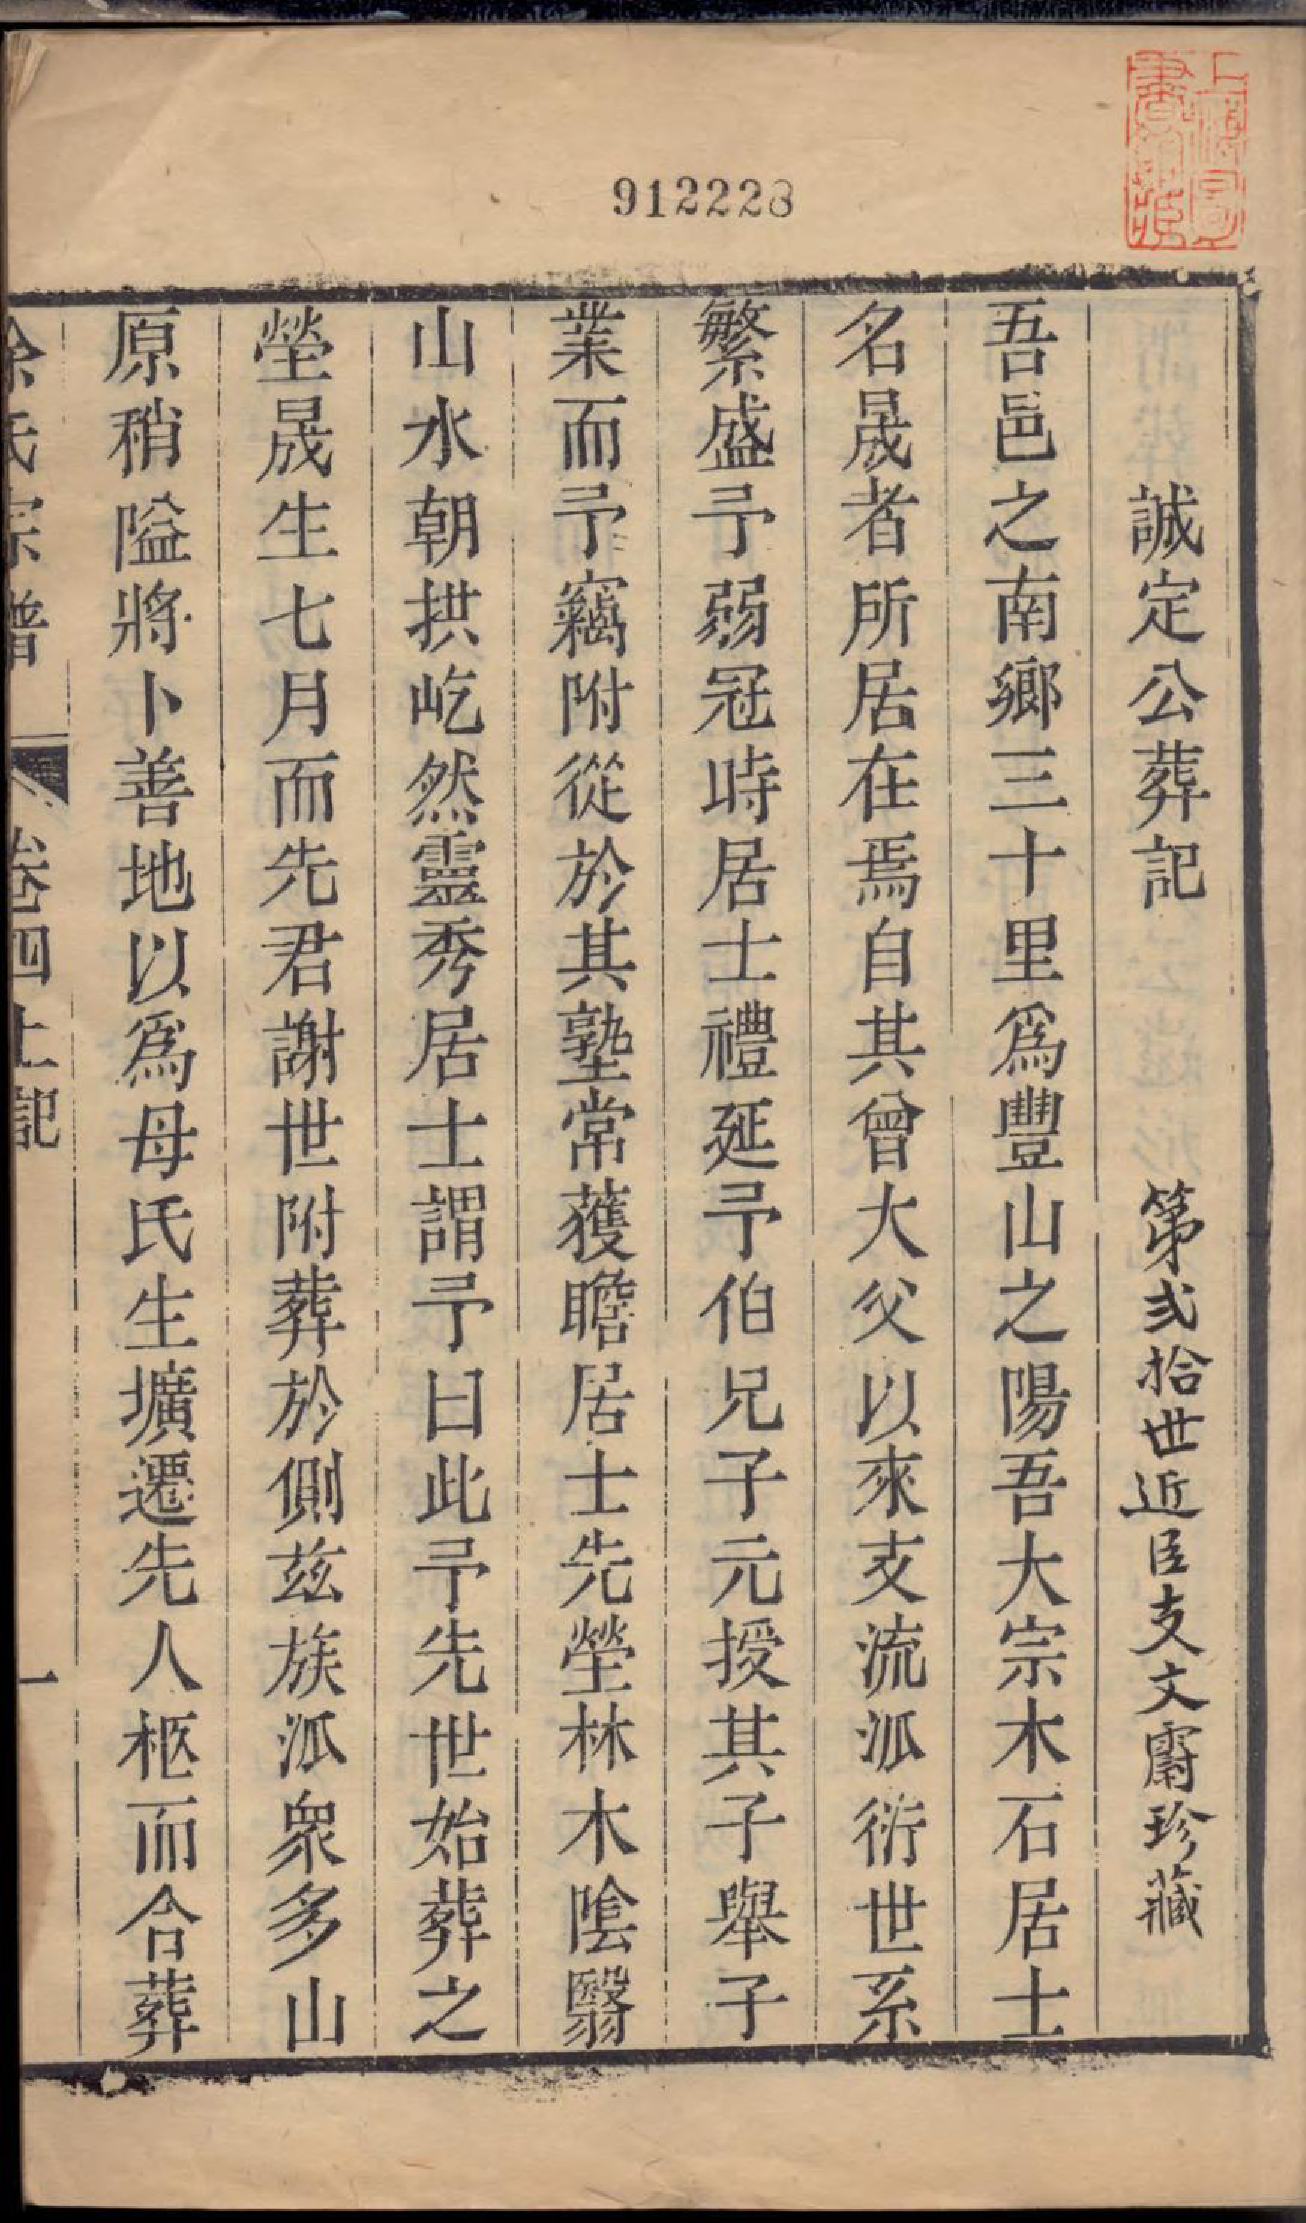 上海圖書館藏
912228
誠定公葬記
第弍拾世近臣支文爵珍藏
吾邑之南鄉三十里爲豐山之陽吾大宗木石居士
名晟者所居在焉自其曾大父以來支流派衍世系
繁盛予弱冠時居士禮延予伯兄子元授其子舉子
業而予竊附從於其塾常獲瞻居士先塋林木陰翳
山水朝拱屹然靈秀居士謂予曰此予先世始葬之
塋晟生七月而先君謝世附葬於側茲族派衆多山
原稍隘將卜善地以爲母氏生壙遷先人柩而合葬
余氏宗譜
卷四上記
一